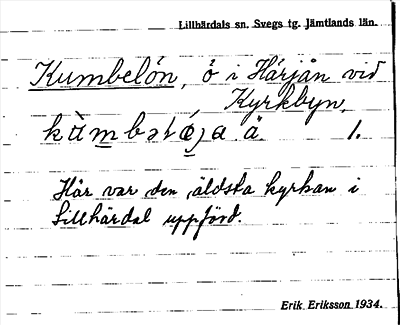 Lillhärdals sn. Svegs tg. Jämtlands län.
Kumbelön, ö i Härjån vid
Kyrkbyn.
1.
Här var den äldsta kyrkan i
Lillhärdal uppförd.
Erik Eriksson 1934.